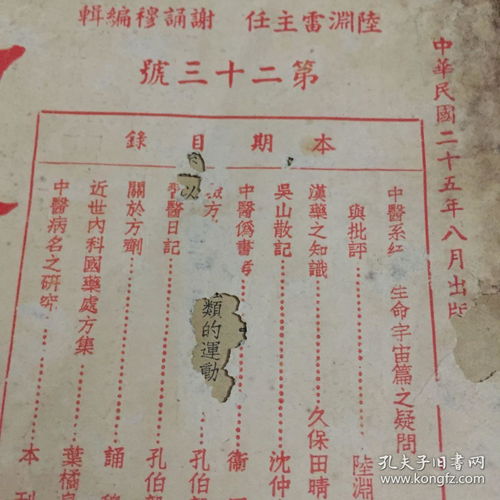 陸淵雷主任 謝誦穆編輯
第二十三號
中華民國二十五年八月出版
本期目錄
中醫系紅 生命宇宙篇之疑問
與批評 陸淵
漢藥之知識 久保田晴
吳山散記 沈仲
中醫偽書考 衞
方 孔伯
習醫日記 孔伯
關於方劑 誦
近世內科國藥處方集 葉橘
中醫病名之研究 本刊
以
類的運動
孔夫子旧书网
kongfz.com